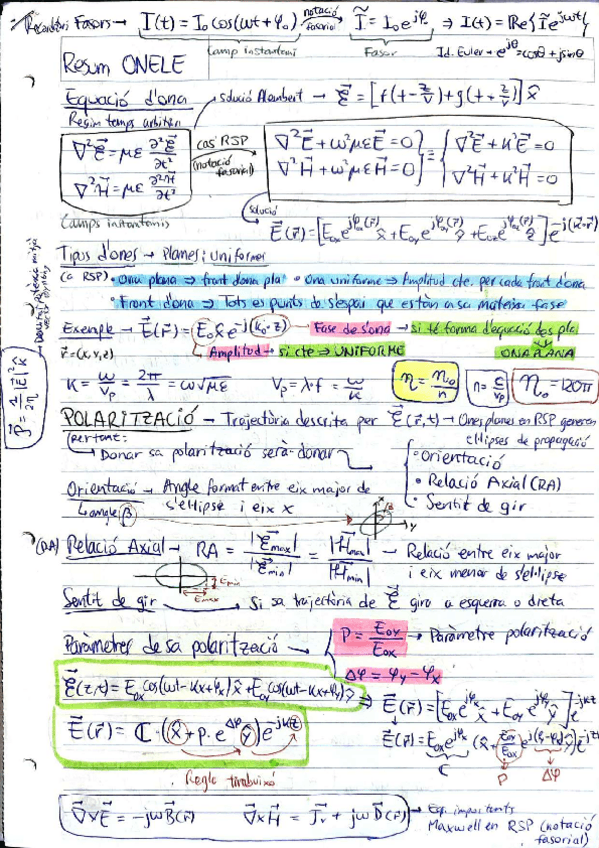 Recordem Fasors → I(t) = I₀ cos(ωt + φ₀) notació fasorial → Ĩ = I₀e^{jφ₀} ⇒ I(t) = Re{Ĩe^{jωt}}
Camp instantani Fasor Id. Euler → e^{jθ} = cosθ + jsinθ
Resum ONELE
Equació d'ona → solució Alembert → ℰ⃗ = [f(t - z/v) + g(t + z/v)] x̂
Regim temps arbitrari
∇²ℰ⃗ = με ∂²ℰ⃗/∂t² cas RSP (notació fasorial) → ∇²E⃗ + ω²μεE⃗ = 0 ≡ ∇²E⃗ + K²E⃗ = 0
∇²ℋ⃗ = με ∂²ℋ⃗/∂t² ∇²H⃗ + ω²μεH⃗ = 0 ∇²H⃗ + K²H⃗ = 0
Camps instantanis solució → E⃗(r⃗) = [E₀ₓe^{jφ₀ₓ(r⃗)} x̂ + E₀ᵧe^{jφ₀ᵧ(r⃗)} ŷ + E₀ze^{jφ₀z(r⃗)} ẑ] e^{-j(K⃗·r⃗)}
Tipus d'ones → Planes i uniformes
(a RSP) • Ona plana ⇒ front d'ona pla • Ona uniforme ⇒ Amplitud cte. per cada front d'ona
• Front d'ona → Tots es punts de s'espai que estàn a sa mateixa fase
Exemple → E⃗(r⃗) = E₀x̂e^{-j(K₀·z)} → Fase de s'ona → si té forma d'equació des pla
r⃗ = (x, y, z) Amplitud → si cte ⇒ UNIFORME ONA PLANA
K = ω/Vp = 2π/λ = ω√με Vp = λ·f = ω/K η = η₀/n n = c/vp η₀ = 120π
𝒫⃗ = 1/2η |E⃗|² K̂
POLARITZACIÓ → Trajectòria descrita per ℰ⃗(r⃗,t) → Ones planes en RSP generen
per tant: el·lipses de propagació
→ Donar sa polarització serà donar • Orientació
• Relació Axial (RA)
• Sentit de gir
Orientació → Angle format entre eix major de
↳ angle β s'el·lipse i eix x
x
y
(RA) Relació Axial → RA = |ℰ⃗max|/|ℰ⃗min| = |ℋ⃗max|/|ℋ⃗min| → Relació entre eix major
i eix menor de s'el·lipse
Emin
Emax
Sentit de gir → Si sa trajectòria de ℰ⃗ gira a esquerra o dreta
Paràmetres de sa polarització → P = E₀ᵧ/E₀ₓ → Paràmetre polarització
Δφ = φᵧ - φₓ
ℰ⃗(z,t) = E₀ₓcos(ωt - Kx + φₓ)x̂ + E₀ᵧcos(ωt - Kx + φᵧ)ŷ ⇒ E⃗(r⃗) = [E₀ₓe^{jφₓ} x̂ + E₀ᵧe^{jφᵧ} ŷ] e^{-jKz}
E⃗(r⃗) = ℂ · (x̂ + p · e^{Δφ} ŷ) e^{-jKz} E⃗(r⃗) = E₀ₓe^{jφₓ} (x̂ + E₀ᵧ/E₀ₓ e^{j(φᵧ-φₓ)} ŷ) e^{-jKz}
C P Δφ
Regla tirabuixó
∇⃗×E⃗ = -jωB⃗(r⃗) ∇⃗×H⃗ = J⃗ᵥ + jωD⃗(r⃗) → Eqs. importants
Maxwell en RSP (notació
fasorial)